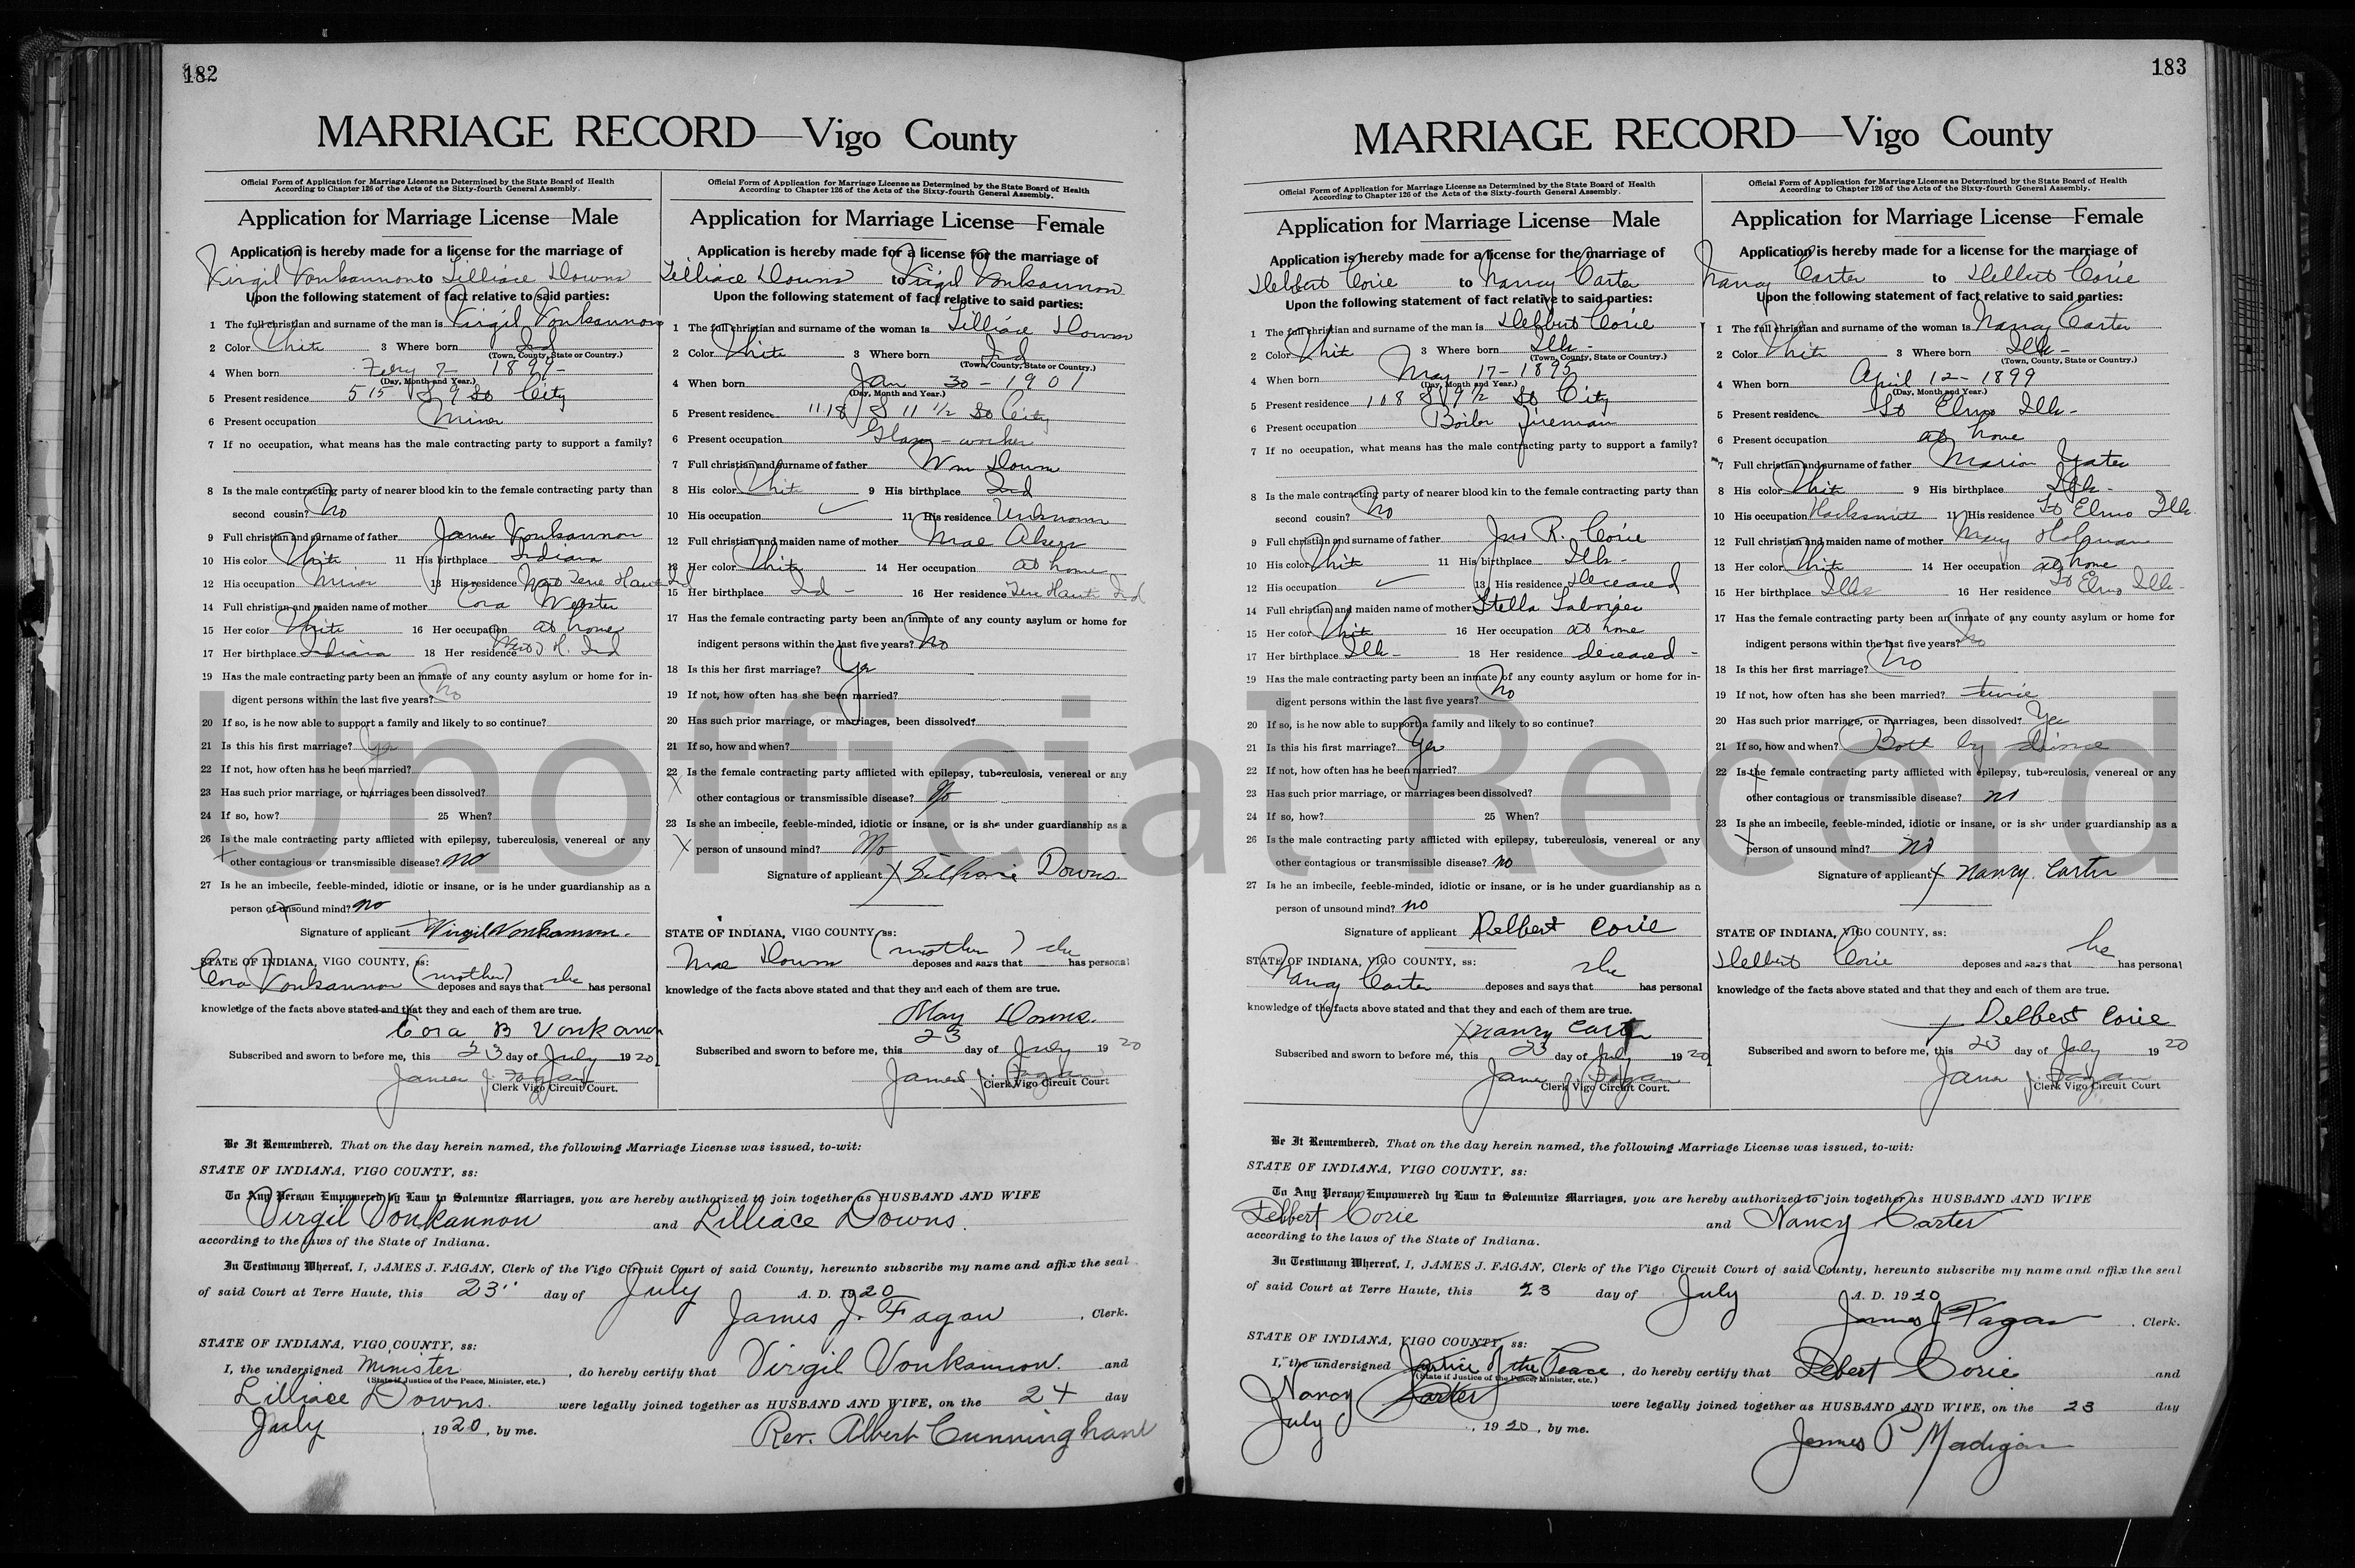 182
MARRIAGE RECORD—Vigo County
Official Form of Application for Marriage License as Determined by the State Board of Health
According to Chapter 126 of the Acts of the Sixty-fourth General Assembly.
Application for Marriage License—Male
Application is hereby made for a license for the marriage of
Virgil Vonkannon to Lilliace Downs
Upon the following statement of fact relative to said parties:
1 The full christian and surname of the man is Virgil Vonkannon
2 Color White 3 Where born Ind
(Town, County, State or Country.)
4 When born Feby 1899
(Day, Month and Year.)
5 Present residence 515 S 9 St City
6 Present occupation Miner
7 If no occupation, what means has the male contracting party to support a family?
8 Is the male contracting party of nearer blood kin to the female contracting party than
second cousin? No
9 Full christian and surname of father James Vonkannon
10 His color White 11 His birthplace Indiana
12 His occupation Miner 13 His residence West Terre Haute Ind
14 Full christian and maiden name of mother Cora
15 Her color White 16 Her occupation at home
17 Her birthplace Indiana 18 Her residence West T. H. Ind
19 Has the male contracting party been an inmate of any county asylum or home for in-
digent persons within the last five years? No
20 If so, is he now able to support a family and likely to so continue?
21 Is this his first marriage? Yes
22 If not, how often has he been married?
23 Has such prior marriage, or marriages been dissolved?
24 If so, how? 25 When?
26 Is the male contracting party afflicted with epilepsy, tuberculosis, venereal or any
X other contagious or transmissible disease? no
27 Is he an imbecile, feeble-minded, idiotic or insane, or is he under guardianship as a
person of unsound mind? no
Signature of applicant Virgil Vonkannon.
STATE OF INDIANA, VIGO COUNTY, ss:
Cora Vonkannon (mother) deposes and says that she has personal
knowledge of the facts above stated and that they and each of them are true.
Cora B Vonkanon
Subscribed and sworn to before me, this 23 day of July 1920
James J. Fagan
Clerk Vigo Circuit Court.
Official Form of Application for Marriage License as Determined by the State Board of Health
According to Chapter 126 of the Acts of the Sixty-fourth General Assembly.
Application for Marriage License—Female
Application is hereby made for a license for the marriage of
Lilliace Downs to Virgil Vonkannon
Upon the following statement of fact relative to said parties:
1 The full christian and surname of the woman is Lilliace Downs
2 Color White 3 Where born Ind
(Town, County, State or Country.)
4 When born Jan 30 - 1901
(Day, Month and Year.)
5 Present residence 1118 S 11 1/2 St City
6 Present occupation Glass-worker
7 Full christian and surname of father Wm Downs
8 His color White 9 His birthplace Ind
10 His occupation 11 His residence Unknown
12 Full christian and maiden name of mother Mae Akers
13 Her color White 14 Her occupation at home
15 Her birthplace Ind - 16 Her residence Terre Haute Ind
17 Has the female contracting party been an inmate of any county asylum or home for
indigent persons within the last five years? No
18 Is this her first marriage? Yes
19 If not, how often has she been married?
20 Has such prior marriage, or marriages, been dissolved?
21 If so, how and when?
22 Is the female contracting party afflicted with epilepsy, tuberculosis, venereal or any
X other contagious or transmissible disease? No
23 Is she an imbecile, feeble-minded, idiotic or insane, or is she under guardianship as a
X person of unsound mind? No
Signature of applicant X Downs.
STATE OF INDIANA, VIGO COUNTY, ss:
Mae Downs (mother) deposes and says that she has personal
knowledge of the facts above stated and that they and each of them are true.
May Downs.
Subscribed and sworn to before me, this 23 day of July 1920
James J. Fagan
Clerk Vigo Circuit Court
Be It Remembered, That on the day herein named, the following Marriage License was issued, to-wit:
STATE OF INDIANA, VIGO COUNTY, ss:
To Any Person Empowered by Law to Solemnize Marriages, you are hereby authorized to join together as HUSBAND AND WIFE
Virgil Vonkannon and Lilliace Downs.
according to the laws of the State of Indiana.
In Testimony Whereof, I, JAMES J. FAGAN, Clerk of the Vigo Circuit Court of said County, hereunto subscribe my name and affix the seal
of said Court at Terre Haute, this 23 day of July A. D. 1920
James J. Fagan, Clerk.
STATE OF INDIANA, VIGO COUNTY, ss:
I, the undersigned Minister, do hereby certify that Virgil Vonkannon. and
(State if Justice of the Peace, Minister, etc.)
Lilliace Downs. were legally joined together as HUSBAND AND WIFE, on the 24 day
July, 1920, by me.
Rev. Albert Cunningham
183
MARRIAGE RECORD—Vigo County
Official Form of Application for Marriage License as Determined by the State Board of Health
According to Chapter 126 of the Acts of the Sixty-fourth General Assembly.
Application for Marriage License—Male
Application is hereby made for a license for the marriage of
Delbert Corie to Nancy Carter
Upon the following statement of fact relative to said parties:
1 The full christian and surname of the man is Delbert Corie
2 Color White 3 Where born Ills -
(Town, County, State or Country.)
4 When born May 17 - 1895
(Day, Month and Year.)
5 Present residence 108 S 9 1/2 St City
6 Present occupation Boiler fireman
7 If no occupation, what means has the male contracting party to support a family?
8 Is the male contracting party of nearer blood kin to the female contracting party than
second cousin? No
9 Full christian and surname of father Jno R. Corie
10 His color White 11 His birthplace Ills -
12 His occupation 13 His residence Deceased
14 Full christian and maiden name of mother Stella
15 Her color White 16 Her occupation at home
17 Her birthplace Ills - 18 Her residence deceased -
19 Has the male contracting party been an inmate of any county asylum or home for in-
digent persons within the last five years? No
20 If so, is he now able to support a family and likely to so continue?
21 Is this his first marriage? Yes
22 If not, how often has he been married?
23 Has such prior marriage, or marriages been dissolved?
24 If so, how? 25 When?
26 Is the male contracting party afflicted with epilepsy, tuberculosis, venereal or any
other contagious or transmissible disease? no
27 Is he an imbecile, feeble-minded, idiotic or insane, or is he under guardianship as a
person of unsound mind? no
Signature of applicant Delbert Corie
STATE OF INDIANA, VIGO COUNTY, ss:
Nancy Carter deposes and says that she has personal
knowledge of the facts above stated and that they and each of them are true.
X Nancy Carter
Subscribed and sworn to before me, this 23 day of July 1920
James J. Fagan
Clerk Vigo Circuit Court.
Official Form of Application for Marriage License as Determined by the State Board of Health
According to Chapter 126 of the Acts of the Sixty-fourth General Assembly.
Application for Marriage License—Female
Application is hereby made for a license for the marriage of
Nancy Carter to Delbert Corie
Upon the following statement of fact relative to said parties:
1 The full christian and surname of the woman is Nancy Carter
2 Color White 3 Where born Ills -
(Town, County, State or Country.)
4 When born April 12 - 1899
(Day, Month and Year.)
5 Present residence St Elmo Ills -
6 Present occupation at home
7 Full christian and surname of father Marion Yates
8 His color White 9 His birthplace Ills -
10 His occupation 11 His residence St Elmo Ills.
12 Full christian and maiden name of mother Mary Holeman
13 Her color White 14 Her occupation at home
15 Her birthplace Ills 16 Her residence St Elmo Ills
17 Has the female contracting party been an inmate of any county asylum or home for
indigent persons within the last five years? No
18 Is this her first marriage? No
19 If not, how often has she been married? twice
20 Has such prior marriage, or marriages, been dissolved? Yes
21 If so, how and when? Both by divorce
22 Is the female contracting party afflicted with epilepsy, tuberculosis, venereal or any
other contagious or transmissible disease? no
23 Is she an imbecile, feeble-minded, idiotic or insane, or is she under guardianship as a
person of unsound mind? no
Signature of applicant X Nancy. Carter
STATE OF INDIANA, VIGO COUNTY, ss:
Delbert Corie deposes and says that he has personal
knowledge of the facts above stated and that they and each of them are true.
X Delbert Corie
Subscribed and sworn to before me, this 23 day of July 1920
James J. Fagan
Clerk Vigo Circuit Court
Be It Remembered, That on the day herein named, the following Marriage License was issued, to-wit:
STATE OF INDIANA, VIGO COUNTY, ss:
To Any Person Empowered by Law to Solemnize Marriages, you are hereby authorized to join together as HUSBAND AND WIFE
Delbert Corie and Nancy Carter
according to the laws of the State of Indiana.
In Testimony Whereof, I, JAMES J. FAGAN, Clerk of the Vigo Circuit Court of said County, hereunto subscribe my name and affix the seal
of said Court at Terre Haute, this 23 day of July A. D. 1920
James J Fagan, Clerk.
STATE OF INDIANA, VIGO COUNTY, ss:
I, the undersigned Justice of the Peace, do hereby certify that Delbert Corie and
(State if Justice of the Peace, Minister, etc.)
Nancy Carter were legally joined together as HUSBAND AND WIFE, on the 23 day
July, 1920, by me.
James P Madigan
Unofficial Record